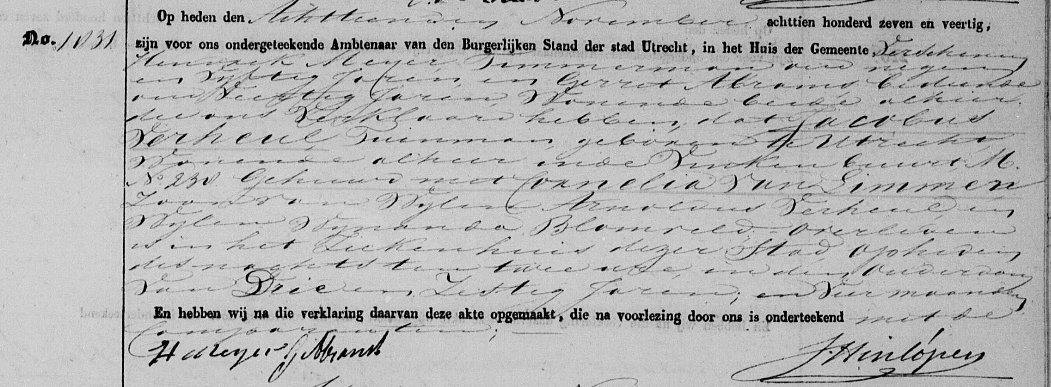 Op heden den Achttienden November achttien honderd zeven en veertig,
No. 1031 zijn voor ons ondergeteekende Ambtenaar van den Burgerlijken Stand der stad Utrecht, in het Huis der Gemeente Verschenen
Hendrik Meyer Timmerman oud negen
en Vyftig Jaren, en Gerret Abrams bediende
oud Veertig Jaren Wonende beide alhier
die ons Verklaard hebben, dat Jacobus
Verheul Tuinman geboren te Utrecht
Wonende alhier inde buurt M.
No 238 Gehuwd met Cornelia Van Limmen
Zoon van Wylen Arnoldus Verheul en
Wylen Wynanda Blomveld Overleden
is in het Ziekenhuis dezer Stad op heden
des nachts ten twee ure, in den Ouderdom
Van Drie en Zestig Jaren, en Vier maanden
En hebben wij na die verklaring daarvan deze akte opgemaakt, die na voorlezing door ons is onderteekend met de
Comparanten
H Meyer G Abrams J Hinlopen